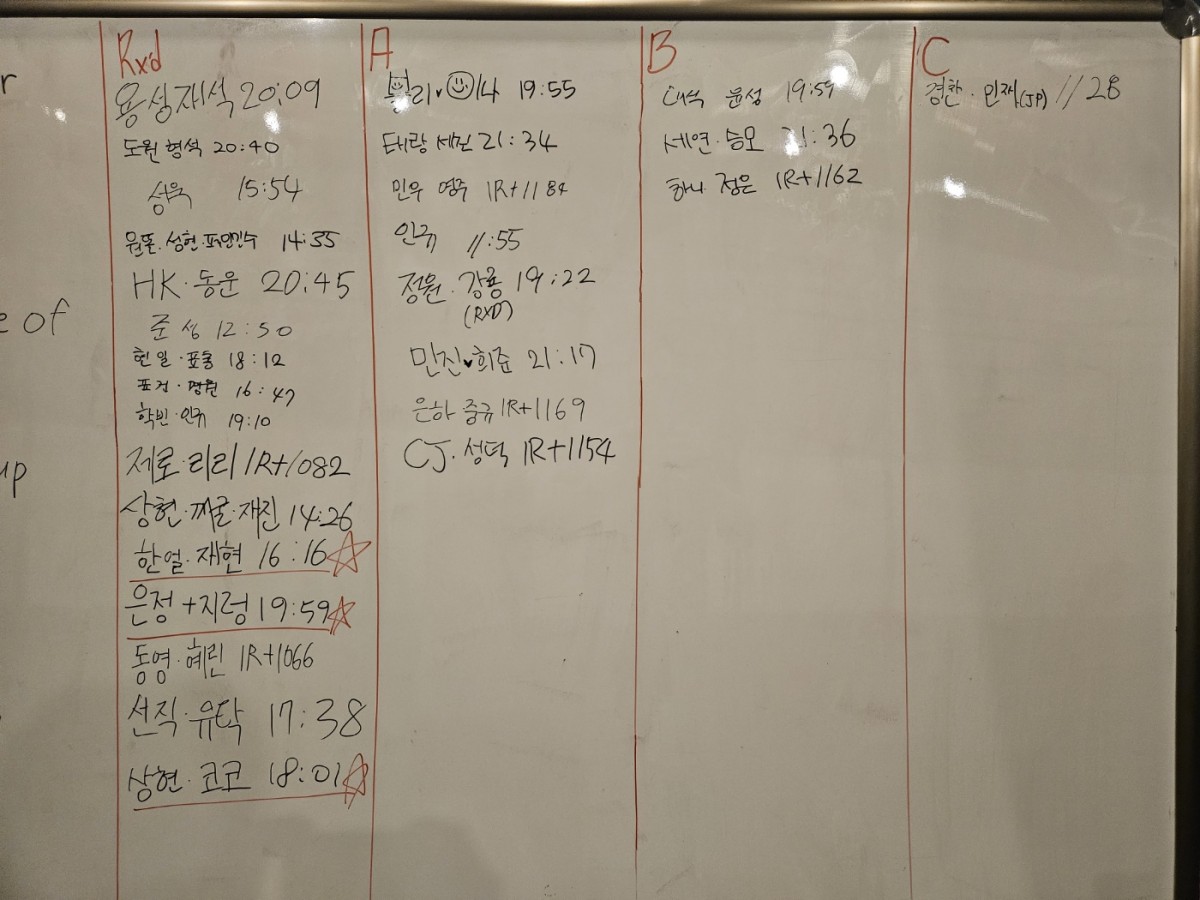 r
e of
up
Rx'd
용성재석 20:09
도원 형석 20:40
성욱 15:54
성현 14:35
HK·동운 20:45
준성 12:50
현일·표홍 18:12
16:47
학빈·인규 19:10
제로·리리 1R+1082
상현·까굴·재진 14:26
한얼·재현 16:16
은정+지렁 19:59
동영·혜린 1R+1066
선직·유탁 17:38
상현·코코 18:01
A
리 14 19:55
태랑 세진 21:34
민우 영주 1R+1184
인규 11:55
정원·강룡 19:22
(RXD)
민진♥희준 21:17
은하 중규 1R+1169
CJ·성덕 1R+1154
B
대석 윤성 19:59
세연·승모 21:36
하니 정은 1R+1162
C
경환·민재(JP) 1128